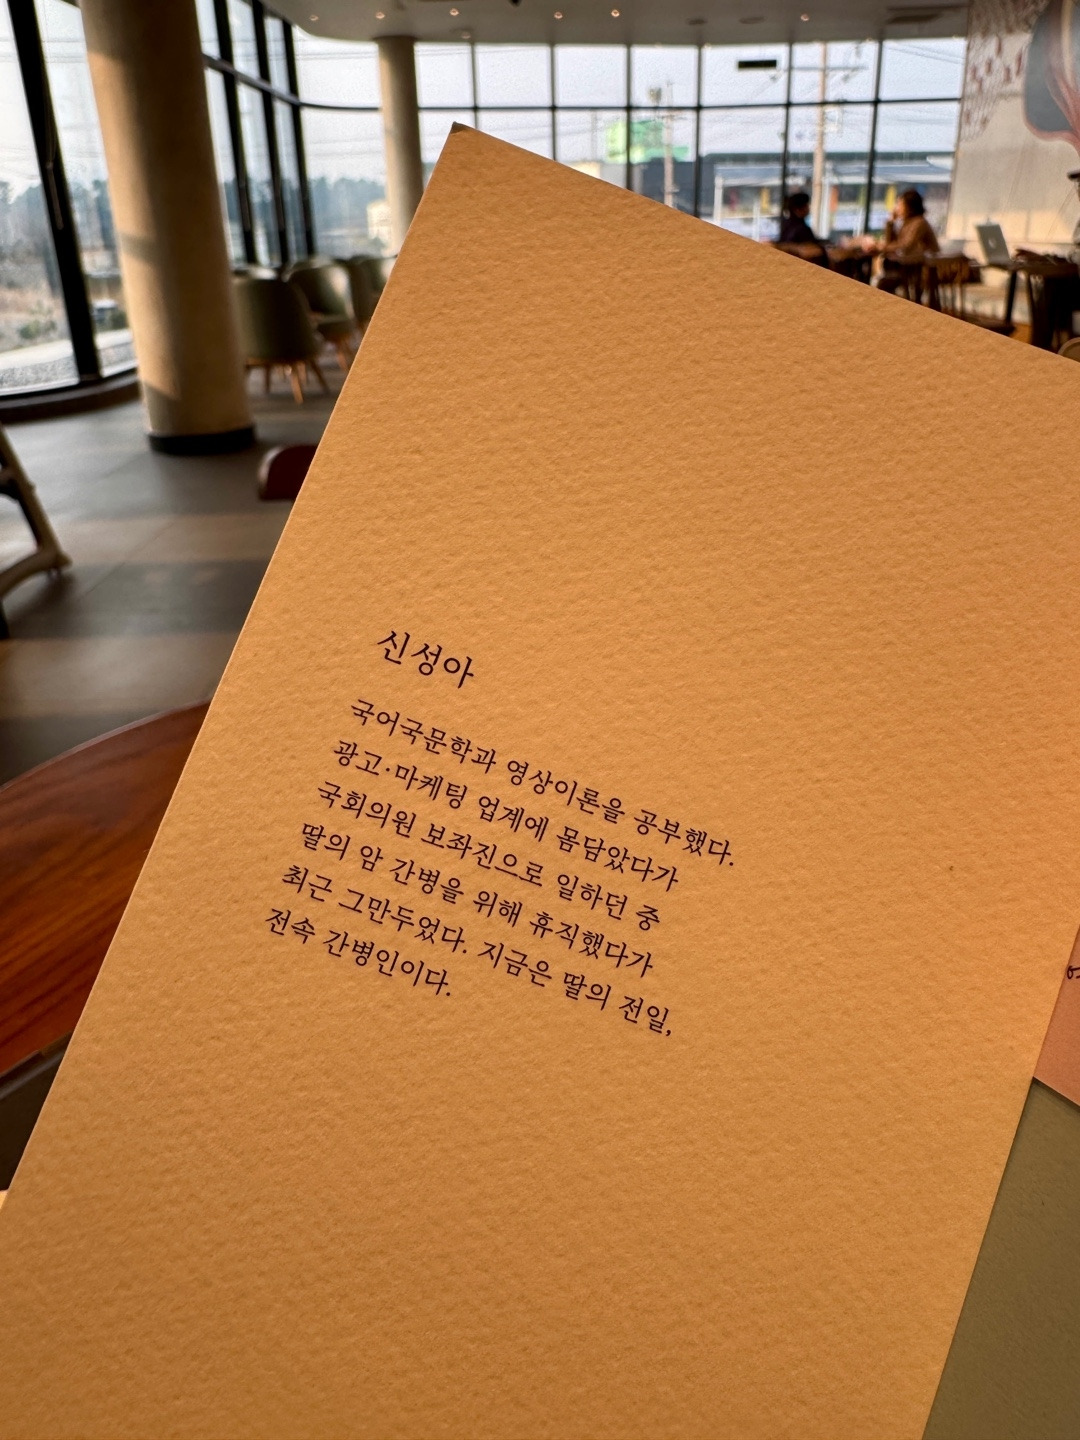 신성아
국어국문학과 영상이론을 공부했다.
광고·마케팅 업계에 몸담았다가
국회의원 보좌진으로 일하던 중
딸의 암 간병을 위해 휴직했다가
최근 그만두었다. 지금은 딸의 전일,
전속 간병인이다.